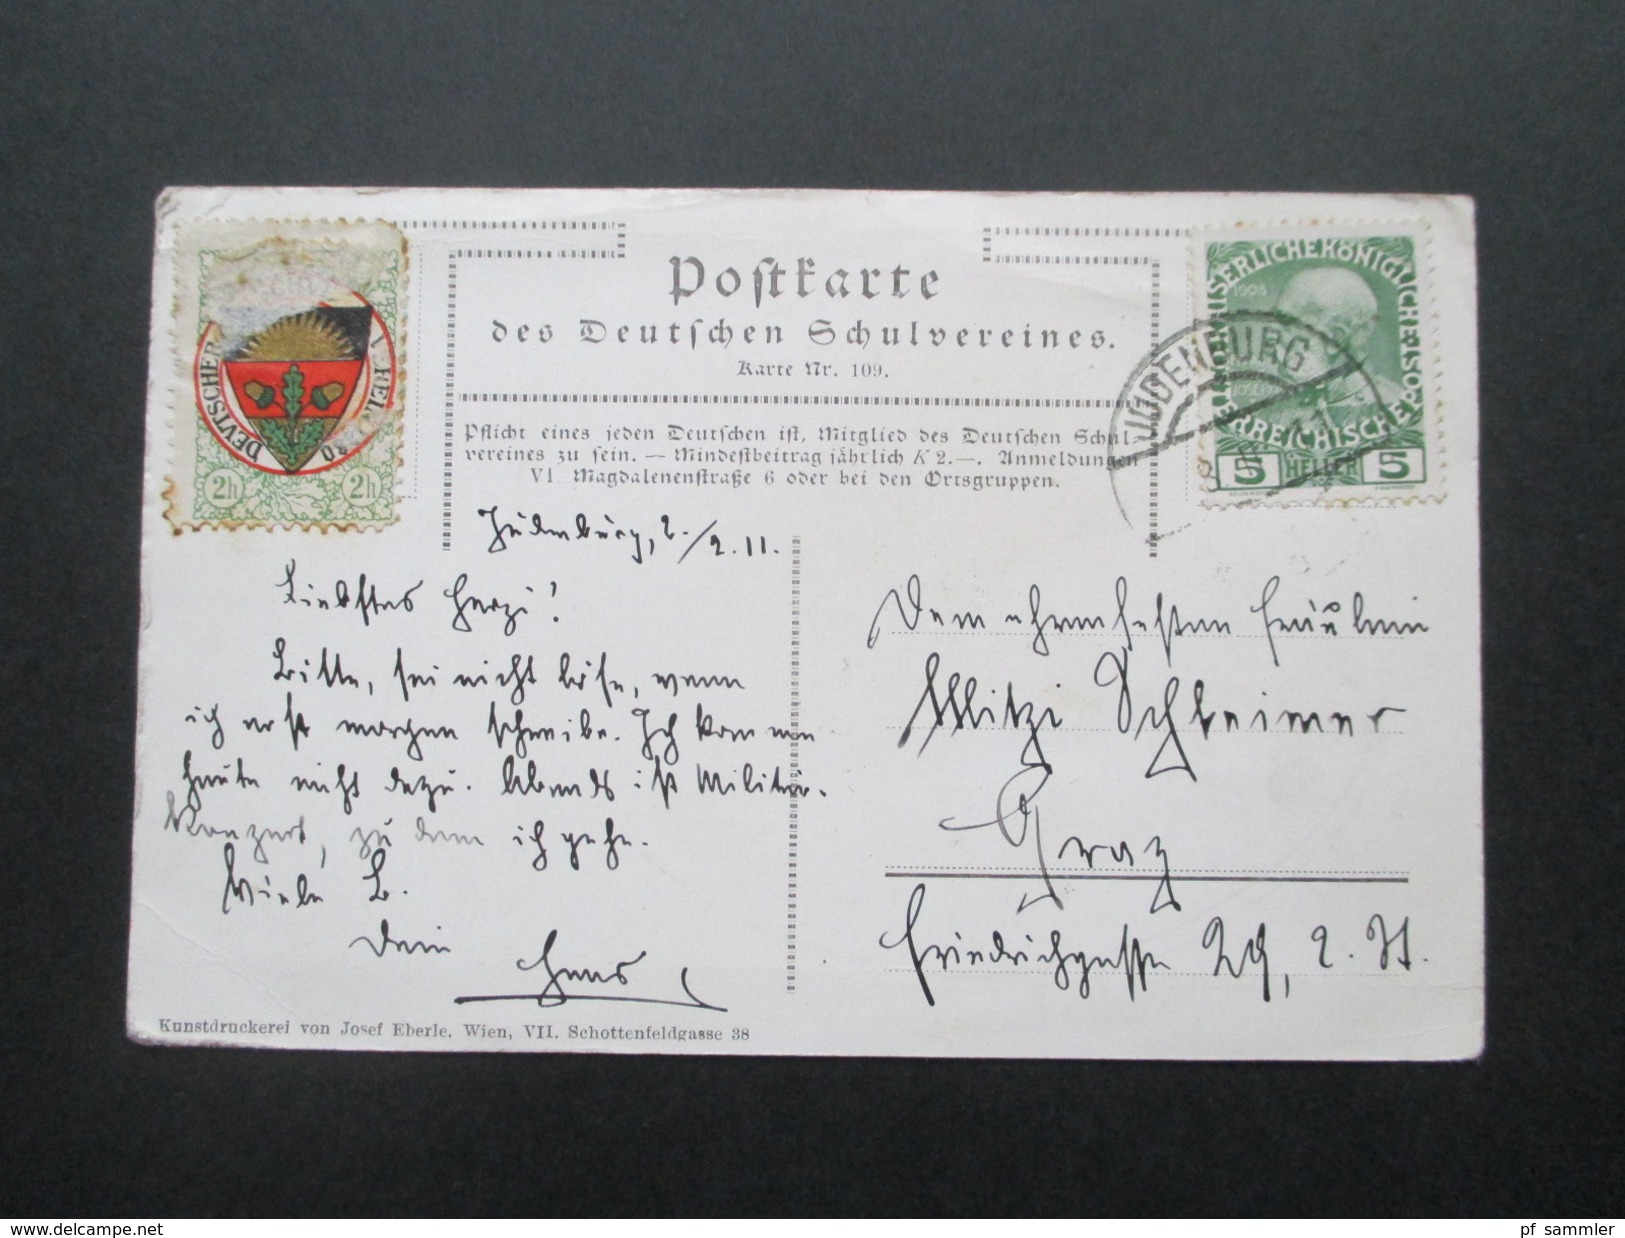 Postkarte
des Deutschen Schulvereines.
Karte Nr. 109.
Pflicht eines jeden Deutschen ist, Mitglied des Deutschen Schul-
vereines zu sein. — Mindestbeitrag jährlich K 2.—. Anmeldungen
VI. Magdalenenstraße 6 oder bei den Ortsgruppen.
DEVTSCHER
1880
2h 2h
KAISERLICHEKÖNIGLICHE
ÖSTERREICHISCHEPOST
1908
5 HELLER 5
JUDENBURG
Judenburg, 2./2.11.
Liebstes Herzi!
Bitte, sei nicht böse, wenn
ich erst morgen schreibe. Ich komme
heute nicht dazu. Abends ist Militär-
Konzert, zu dem ich gehe.
Viele B.
Dein
Hans
Dem ehrenfesten Fräulein
Mitzi Schreimer
Graz
Friedrichgasse 29, 2. St.
Kunstdruckerei von Josef Eberle, Wien, VII. Schottenfeldgasse 38
www.delcampe.net
pf_sammler